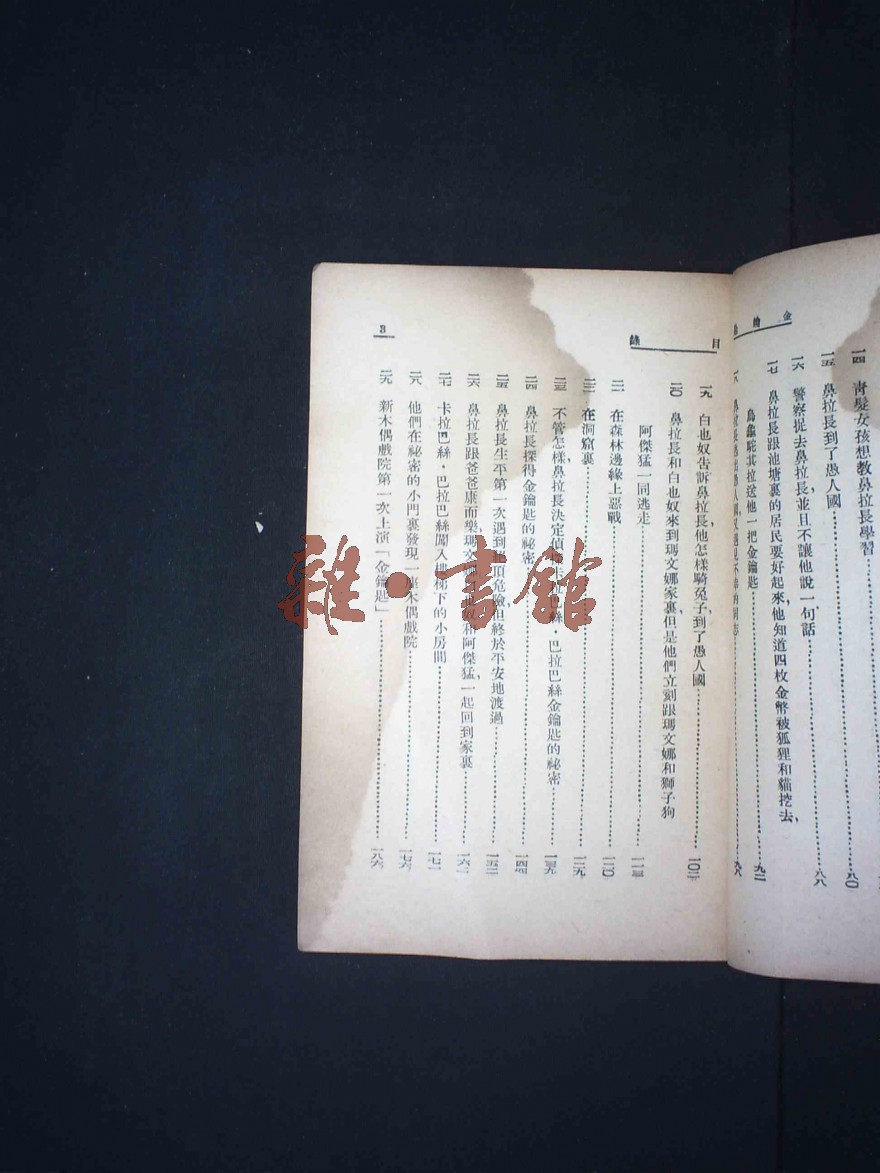 金鑰匙
一四 青髮女孩想教鼻拉長學習 八〇
一五 鼻拉長到了愚人國 八八
一六 警察捉去鼻拉長，並且不讓他說一句話
一七 鼻拉長跟池塘裏的居民要好起來，他知道四枚金幣被狐狸和貓挖去，
烏龜駝其拉送他一把金鑰匙 九二
一八 鼻拉長逃出愚人國，又遇見不幸的同志 九八
目錄
一九 白也奴告訴鼻拉長，他怎樣騎兔子到了愚人國 一〇二
二〇 鼻拉長和白也奴來到瑪文娜家裏，但是他們立刻跟瑪文娜和獅子狗
阿傑猛一同逃走 一一三
二一 在森林邊緣上惡戰 一二〇
二二 在洞窟裏 一二九
二三 不管怎樣，鼻拉長決定偵探卡拉巴絲·巴拉巴絲金鑰匙的祕密 一三九
二四 鼻拉長探得金鑰匙的祕密 一四四
二五 鼻拉長生平第一次遇到絕頂危險，但終於平安地渡過 一五二
二六 鼻拉長跟爸爸康而樂，瑪文娜，白也奴和阿傑猛，一起回到家裏 一六二
二七 卡拉巴絲·巴拉巴絲闖入樓梯下的小房間 一七一
二八 他們在祕密的小門裏發現一座木偶戲院 一七六
二九 新木偶戲院第一次上演「金鑰匙」 一八六
3
雜·書館